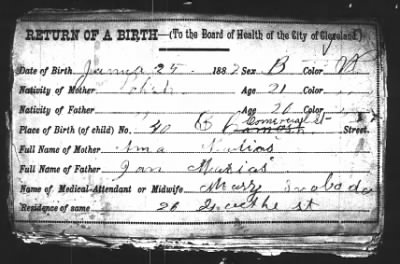 RETURN OF A BIRTH—(To the Board of Health of the City of Cleveland.)
Date of Birth 25 188 Sex B Color W
Nativity of Mother Age 21
Nativity of Father " Age 26
Place of Birth (of child) No. 40 Comercial st Street.
Full Name of Mother Ana
Full Name of Father Jan
Name of Medical-Attendant or Midwife Mary Svoboda
Residence of same 26 st